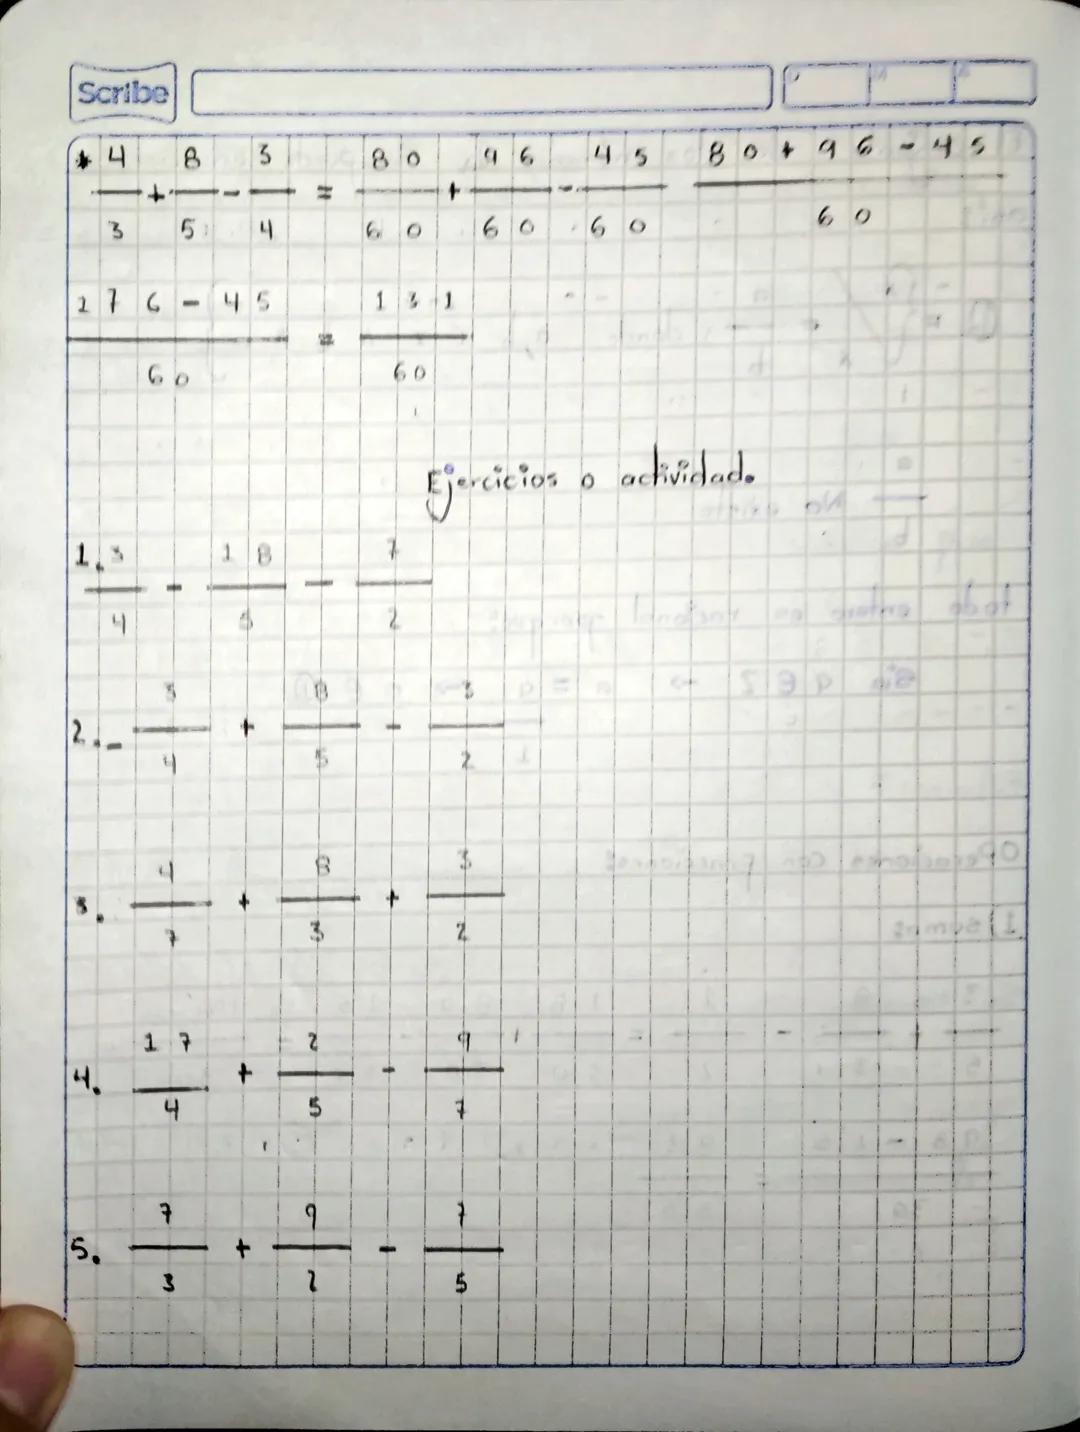 Scribe
* 4/3 + 8/5 - 3/4 = 80/60 + 96/60 - 45/60 80+96-45/60
176-45/60 = 131/60
Ejercicios o actividad.
1. 3/4 - 18/5 - 7/2
2. - 3/4 + 8/5 - 3/2
3. 4/7 + 8/3 + 3/2
4. 17/4 + 2/5 - 9/7
5. 7/3 + 9/2 - 7/5